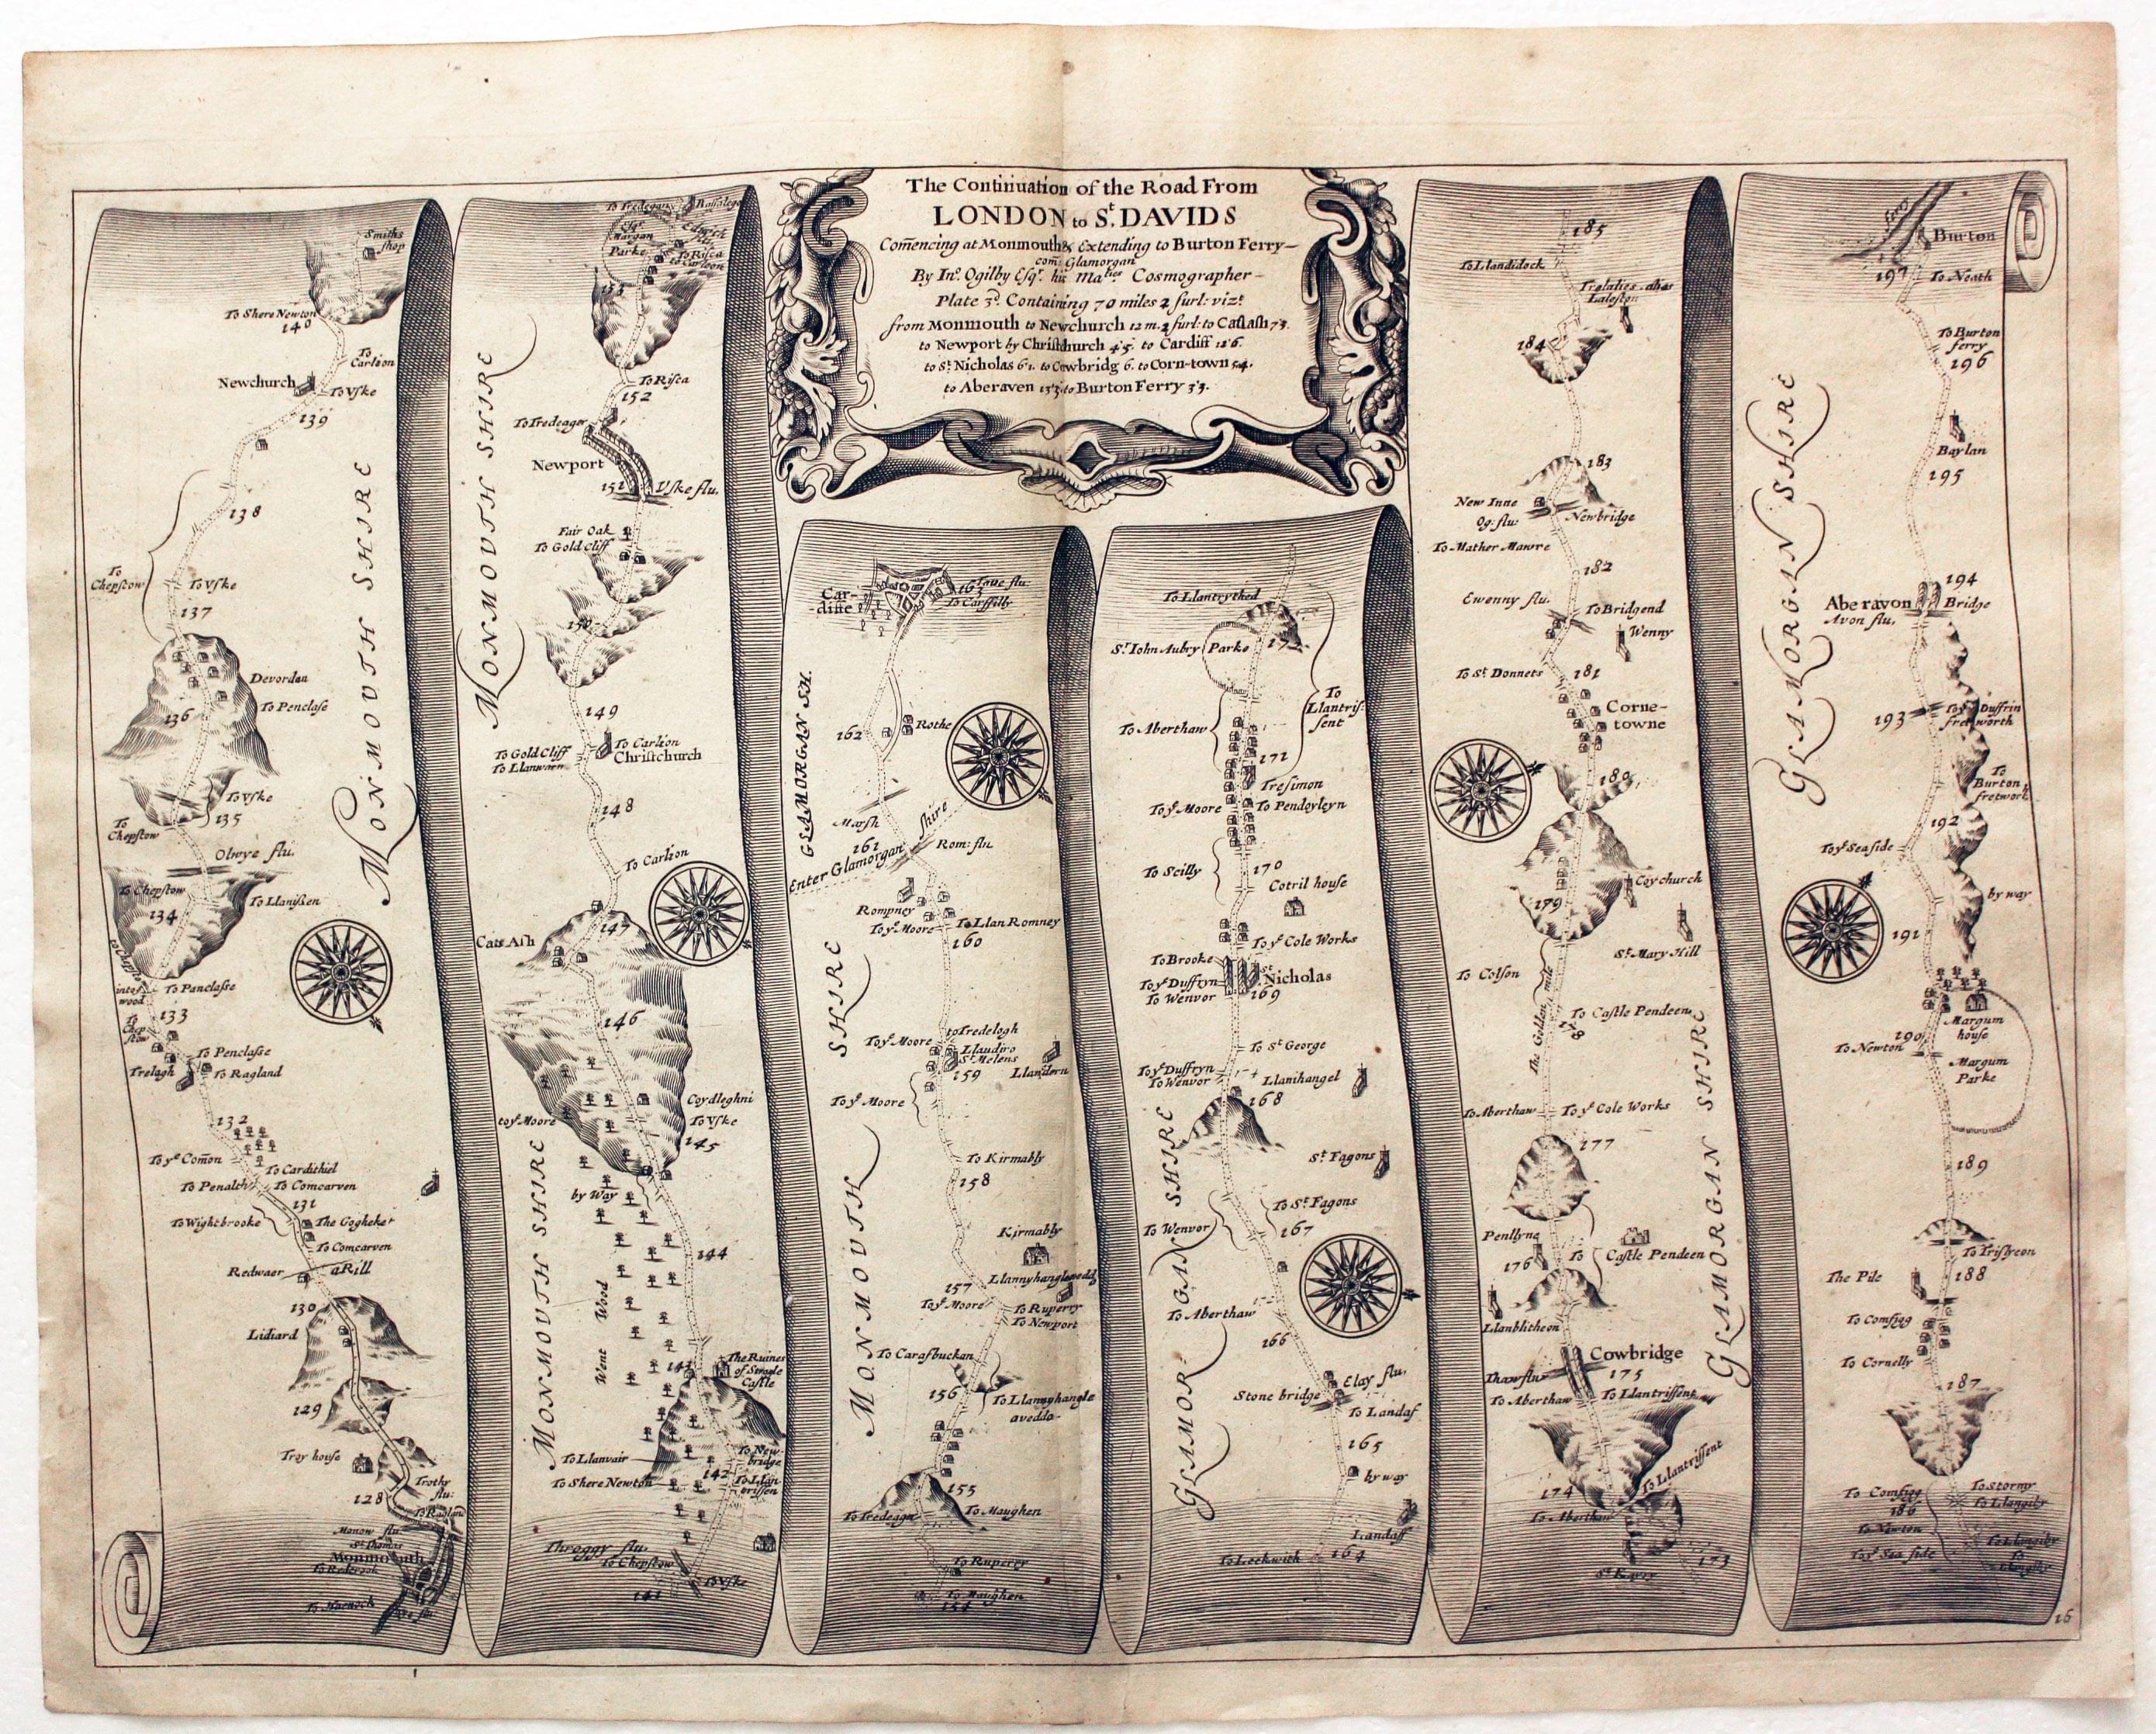 The Continuation of the Road From
LONDON to St. DAVIDS
Com̃encing at Monmouth & Extending to Burton Ferry
com: Glamorgan
By Ino. Ogilby Esqr. his Maties Cosmographer
Plate 3d. Containing 70 miles 2 furl: vizt
from Monmouth to Newchurch 12 m. 2 furl: to Castash 7'3.
to Newport by Christchurch 4'5. to Cardiff 12'6.
to St. Nicholas 6'1. to Cowbridg 6. to Corn-town 5'4.
to Aberaven 13'3. to Burton Ferry 3'3.
Smiths
shop
To Shere Newton
140
To
Carlion
Newchurch
To Vske
139
138
To
Chepstow
To Vske
137
Devordan
To Penclase
136
To Vske
135
To
Chepstow
Olwye flu.
To Chepstow
134
To Llanissen
To Panclasse
133
To
Chep
stow
To Penclasse
Trelagh
To Ragland
132
To ye Com̃on
To Cardithiel
To Penalth
To Comcarven
131
To Wightbrooke
The Cogheke
To Comcarven
Redwaer
a Rill
130
Lidiard
129
Troy house
Trothy
flu:
128
To Ragland
Monow flu.
St. Thomas
Monmouth
To Redbrook
To Hadnock
MONMOUTH SHIRE
To Tredegar
Bassaleg
Morgan
Parke
To Risca
153
To Risca
152
To Tredeager
Newport
151
Vske flu.
Fair Oak
To Gold Cliff
150
149
To Gold Cliff
To Carlion
To Llanwarn
Christchurch
148
To Carlion
147
Cats Ash
146
Coydleghni
to ye Moore
To Vske
145
by Way
144
Went Wood
143
The Ruines
of Strogle
Castle
To Llanvair
To New
bridge
142
To Shere Newton
Throggy flu.
To Chepstow
To Vske
141
MONMOUTH SHIRE
MONMOUTH SHIRE
Car-
-diffe
163
Taue flu:
To Carffilly
162
Rothe
Marsh
161
Enter Glamorgan shire
Rom: flu
Rompney
To ye Moore
To Llan Romney
160
to Tredelogh
To ye Moore
Llandiro
St Melens
159
Llandern
To ye Moore
To Kirmably
158
Kirmably
157
To ye Moore
To Ruperry
To Newport
To Carasbuckan
156
To Llannyhangle
avedda
155
To Tredeagar
To Maughen
To Ruperry
To Maughen
154
GLAMORGAN SH.
MONMOUTH SHIRE
To Llantrythed
Sr. Iohn Aubry Parke
To
Llantris-
sent
To Aberthaw
171
Tresimon
To ye Moore
To Pendoyleyn
To Scilly
170
Cotril house
To ye Cole Works
To Brooke
To ye Duffryn
St
Nicholas
To Wenvor
169
To St George
To ye Duffryn
To Wenvor
Llanihangel
168
St. Fagons
To St. Fagons
To Wenvor
167
To Aberthaw
166
Stone bridge
Elay flu.
To Landaf
165
by way
Landaff
To Leckwith
164
GLAMOR-GAN SHIRE
185
To Llandidock
Trelales alias
Laleston
184
183
New Inne
Og: flu:
Newbridge
To Mather Mawre
182
Ewenny flu.
To Bridgend
Wenny
To St Donnets
181
Corne-
towne
180
179
Coychurch
St Mary Hill
To Colson
The Golden mile
To Castle Pendeen
178
To Aberthaw
To ye Cole Works
177
Penllyne
176
To Castle Pendeen
Llanblitheon
Cowbridge
Thaw flu
175
To Aberthaw
To Llantrissent
174
To Llantrissent
To Aberthaw
173
GLAMORGAN SHIRE
ferry
Burton
197
To Neath
To Burton
ferry
196
Baylan
195
194
Aberavon
Bridge
Avon flu.
193
To ye Duffrin
fretworth
To
Burton
fretwork
192
To ye Sea side
by way
191
Margum
house
190
To Newton
Margum
Parke
189
To Trislyeon
The Pile
188
To Comfigg
To Cornelly
187
To Comfigg
To Stormy
186
To Llangily
To Newton
To ye Sea side
GLAMORGAN SHIRE
16